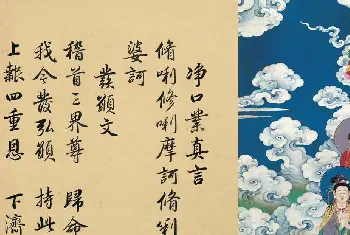 净口業真言
脩唎修唎摩訶脩唎
婆訶
發願文
稽首三界尊 歸命
我今發弘願 持此
上報四重恩 下濟